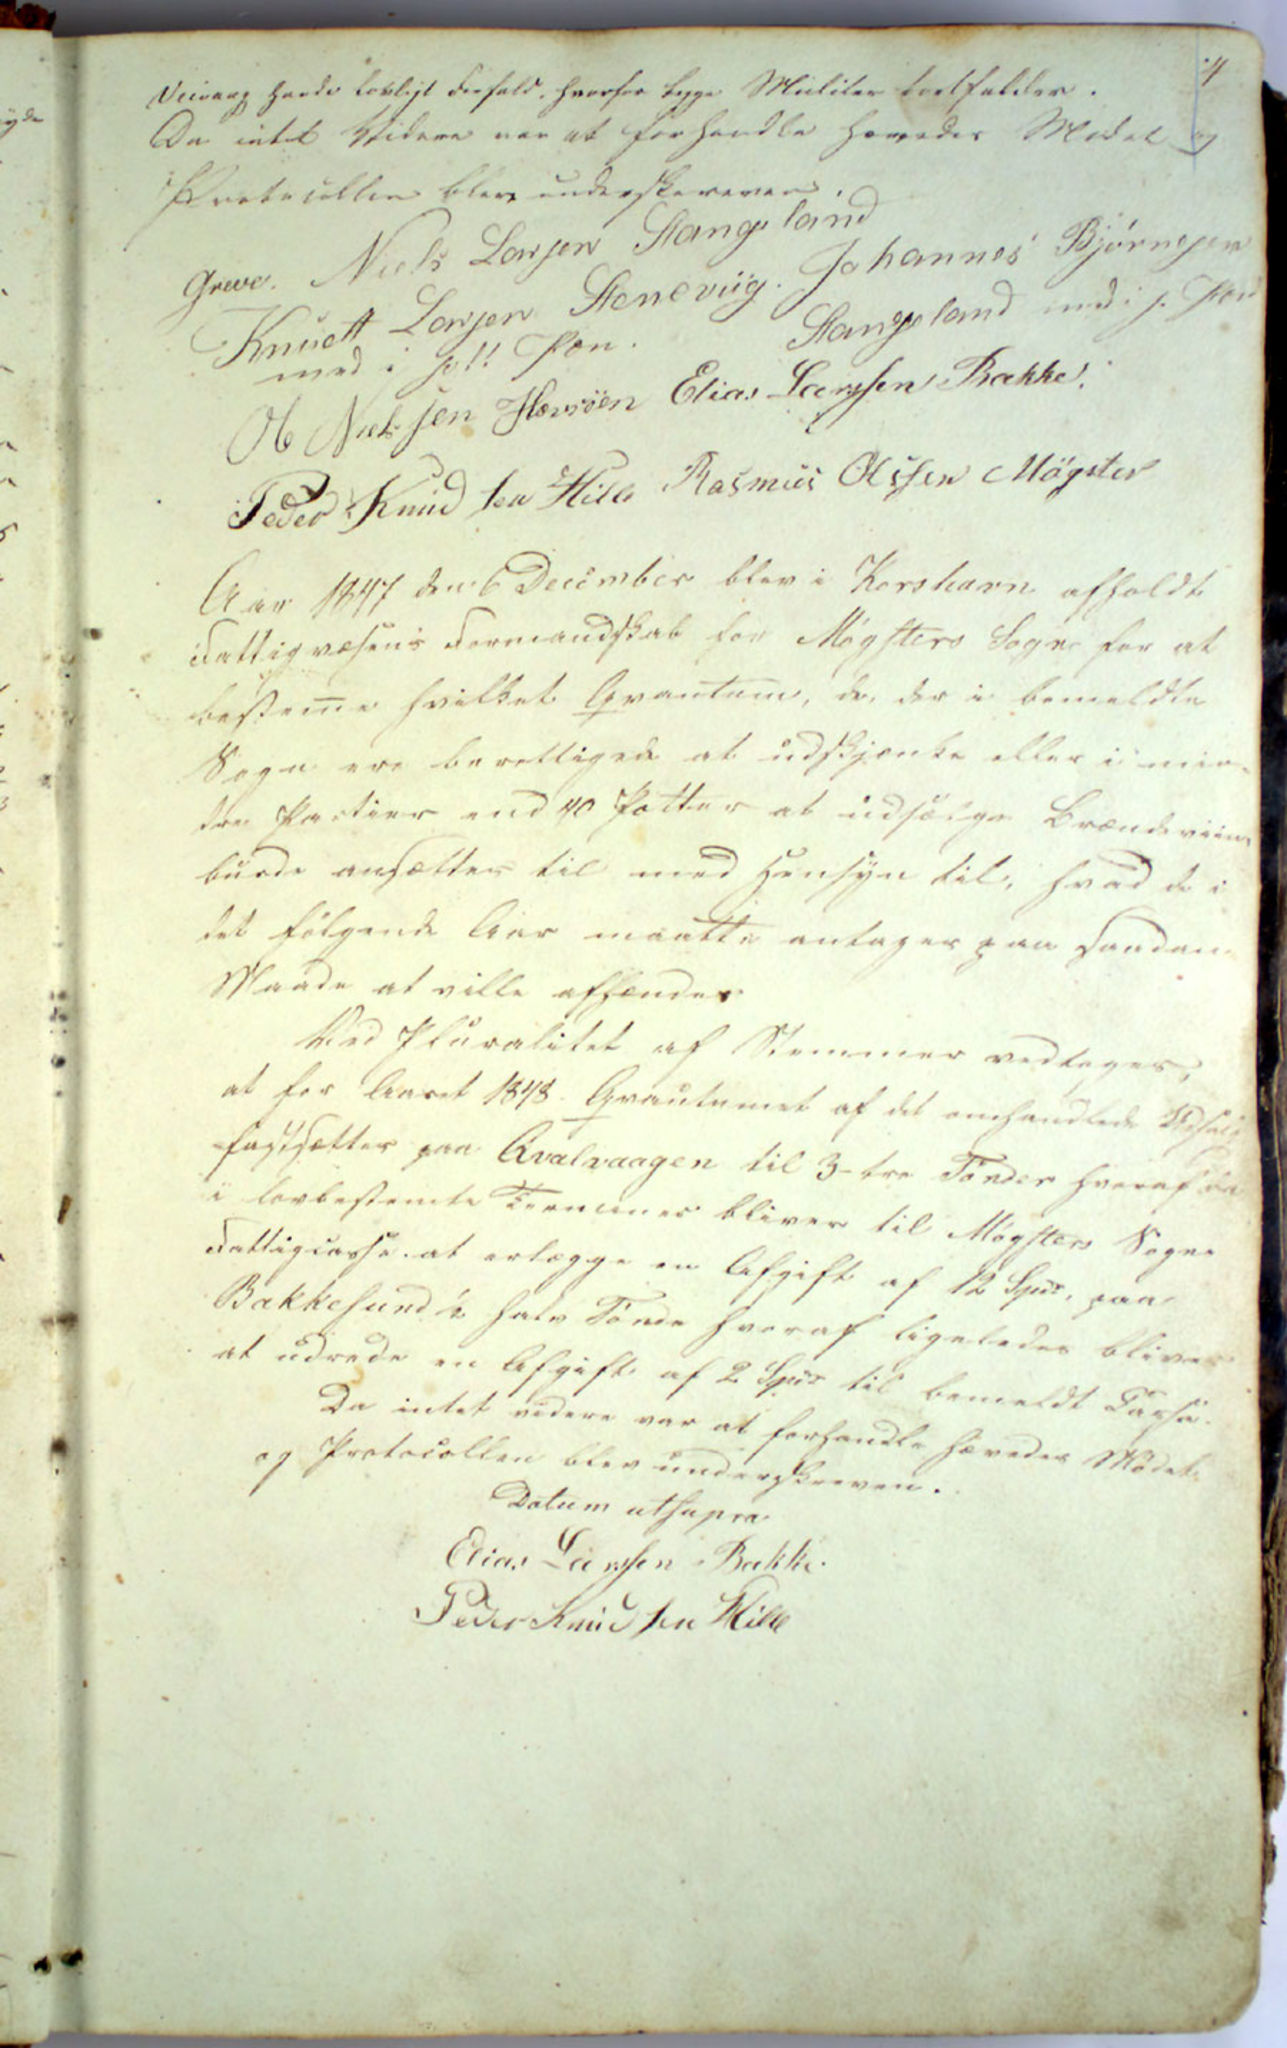 4
Steinung havde lovligt Forfald, hvorfor begge Mulcter bortfalder.
Da intet Videre var at forhandle hævedes Mødet og
Protocollen blev underskreven.
Greve. Niels Larsen Stangeland
Knuett Larsen Stenevüg. Johannes Bjørnesen
med i p!! Pæn. Stangeland med i p. Pæn
Ole Nielssen Hevrøen Elias Larssen Bakke.
Peder Knudsen Hille Rasmus Olssen Møgster
Aar 1847 den 6 December blev i Korshavn afholdt
Fattigvæsens Formandskab for Møgsters Sogn for at
bestemme hvilket Qvantum, de, der i bemeldte
Sogn ere berettigede at udskjænke eller i min-
dre Partier end 40 Potter at udsælge Brændeviin,
burde ansættes til med Hensyn til, hvad de i
det følgende Aar maatte antages paa saadan
Maade at ville afhænde.
Ved Pluralitet af Stemmer vedtoges,
at for Aaret 1848 Qvantumet af det omhandlede Udsalg
fastsættes paa Qvalvaagen til 3-tre Tønder hvoraf da
i lovbestemte Terminer bliver til Møgsters Sogns
Fattigcasse at erlægge en Afgift af 12 Spd, paa
Bakkesund ½ halv Tønde hvoraf ligeledes bliver
at udrede en Afgift af 2 Spd til bemeldt Casse.
Da intet videre var at forhandle hævedes Mødet
og Protocollen blev underskreven.
Datum utsupra
Elias Larssen Bakke.
Peder Knudsen Hille